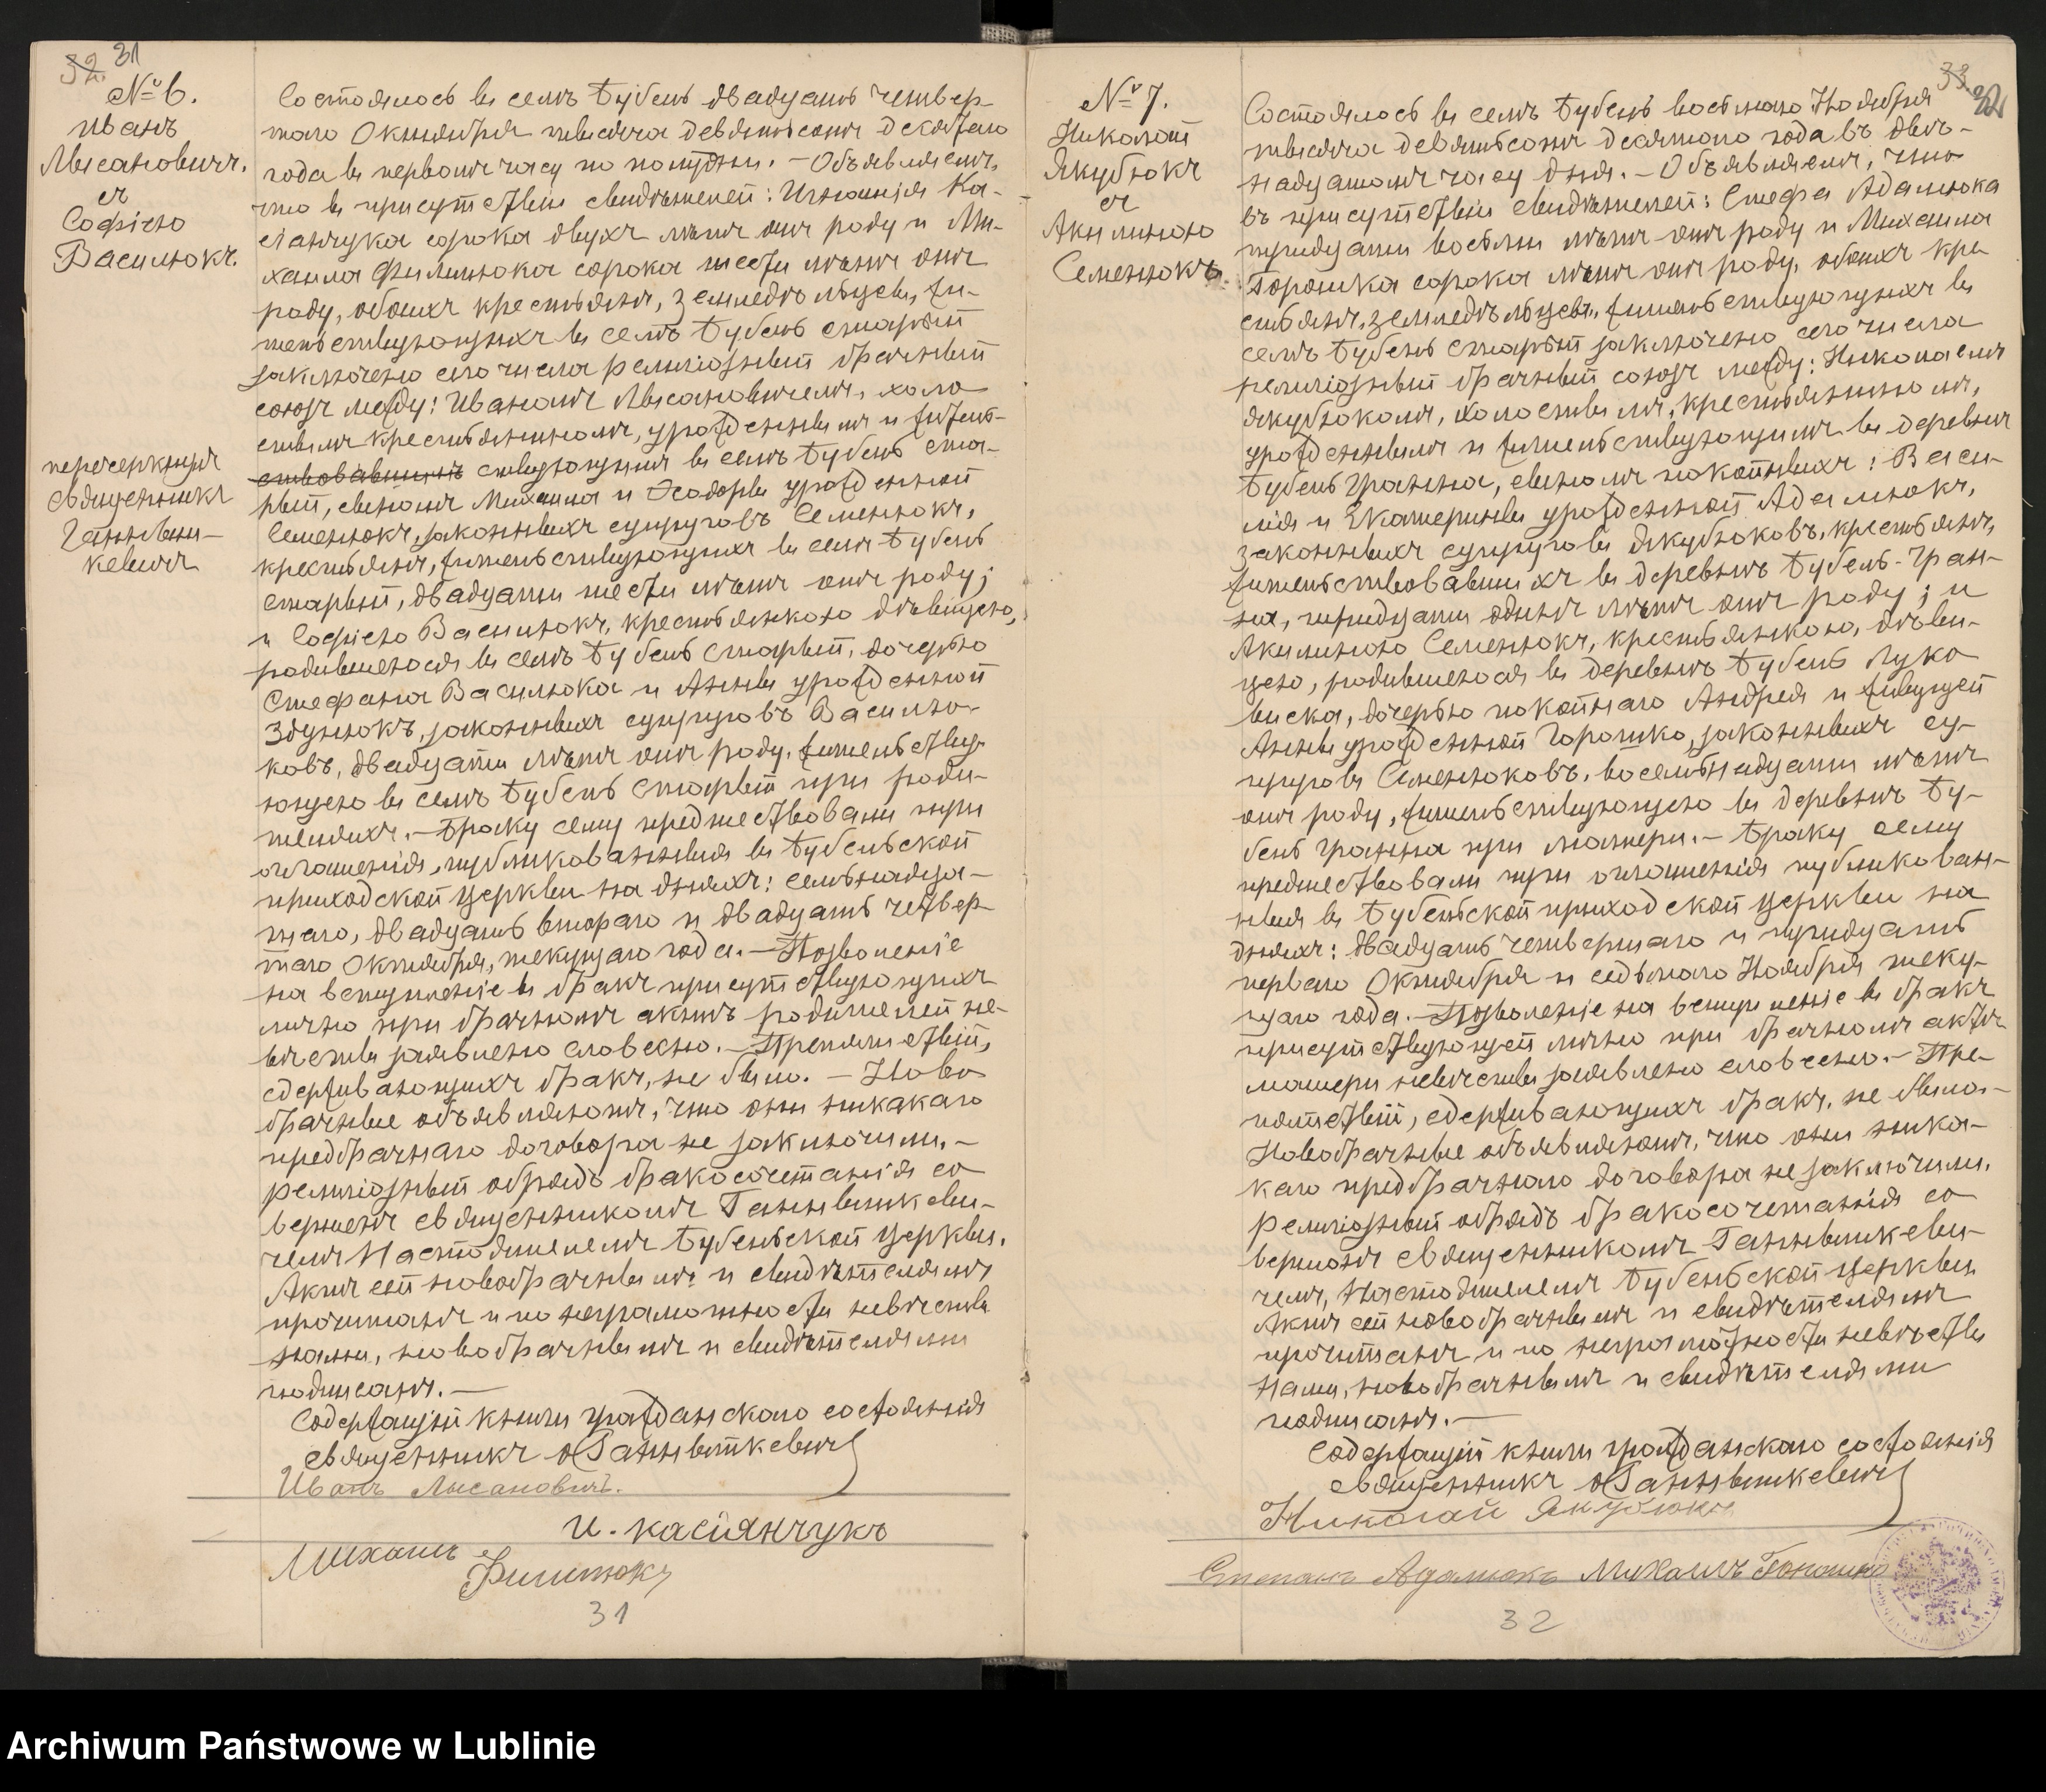 32. 31
№ 6.
Иванъ
Лысановичъ.
съ
Софіею
Василюкъ.
перечеркнулъ
Священникъ
Ганкевичъ
Состоялось въ селѣ Бубель двадцать четвер-
таго Октября тысяча девятьсотъ десятаго
года въ первомъ часу по полудни. – Объявляемъ,
что въ присутствіи свидѣтелей: Игнатія Ка-
сіанчука сорока двухъ лѣтъ отъ роду и Ми-
хаила Филипюка сорока шести лѣтъ отъ
роду, обоихъ крестьянъ, земледѣльцевъ, жи-
тельствующихъ въ селѣ Бубель старый
заключенъ сего числа религіозный брачный
союзъ между: Иваномъ Лысановичемъ, холо
стымъ крестьяниномъ, урожденнымъ и жител-
ствовавшимъ ствующимъ въ селѣ Бубель ста-
рый, сыномъ Михаила и Ѳеодоры урожденной
Семенюкъ, законныхъ супруговъ
крестьянъ, жительствующихъ въ селѣ Бубель
старый, двадцати шести лѣтъ отъ роду;
и Софіею Василюкъ, крестьянкою дѣвицею,
родившеюся въ селѣ Бубель старый, дочерью
Стефана Василюка и Анны урожденной
Здунюкъ, законныхъ супруговъ Василю-
ковъ, двадцати лѣтъ отъ роду, жительству-
ющею въ селѣ Бубель старый при роди-
теляхъ. – Браку сему предшествовали три
оглашенія, публикованныя въ Бубельской
приходской церкви на дняхъ: семьнадца-
таго, двадцать втораго и двадцать четвер-
таго Октября, текущаго года. – Позволеніе
на вступленіе въ бракъ присутствующихъ
лично при брачномъ актѣ родителей не-
вѣсты заявлено словесно. – Препятствій,
сдерживающихъ бракъ, не было. – Ново
брачные объявляютъ, что они никакаго
предбрачнаго договора не заключили. –
религіозный обрядъ бракосочетанія со
вершенъ священникомъ
Настоятелемъ Бубельской церкви.
Актъ сей новобрачнымъ и свидѣтелямъ
прочитанъ и по неграмотности невѣсты
нами, новобрачнымъ и свидѣтелями
подписанъ. –
Содержащій книги гражданскаго состоянія
священникъ
Иванъ Лысановичъ.
И. Касіянчукъ
Михаилъ
Филипюкъ
31
33. 32
№ 7.
Николай
Якубюкъ
съ
Акилиною
Семенюкъ.
Состоялось въ селѣ Бубель восьмаго Ноября
тысяча девятьсотъ десятаго года въ двѣ-
надцатомъ часу дня. – Объявляемъ, что
въ присутствіи свидѣтелей: Стефа Адамюка
тридцати восьми лѣтъ отъ роду и Михаила
Горошка сорока лѣтъ отъ роду, обоихъ кре
стьянъ, земледѣльцевъ, жительствующихъ въ
селѣ Бубель старый заключенъ сего числа
религіозный брачный союзъ между: Николаемъ
Якубюкомъ, холостымъ, крестьяниномъ,
урожденнымъ и жительствующимъ въ деревнѣ
Бубель Гранна, сыномъ покойныхъ: Васи-
лія и Екатерины урожденной Адамюкъ,
законныхъ супруговъ Якубюковъ, крестьянъ,
жительствовавшихъ въ деревнѣ Бубель-Гран-
на, тридцати одинъ лѣтъ отъ роду; и
Акилиною Семенюкъ, крестьянкою, дѣви-
цею, родившеюся въ деревнѣ Бубель Луко
виска, дочерью покойнаго Андрея и живущей
Анны урожденной Горошко, законныхъ су-
пруговъ Семенюковъ, восемьнадцати лѣтъ
отъ роду, жительствующею въ деревнѣ Бу-
бель Гранна при матери. – Браку сему
предшествовали три оглашенія публикован-
ныя въ Бубельской приходской церкви на
дняхъ: двадцать четвертаго и тридцать
перваго Октября и седьмаго Ноября теку-
щаго года. – Позволеніе на вступленіе въ бракъ
присутствующей лично при брачномъ актѣ
матери невѣсты заявлено словесно. – Пре-
пятствій, сдерживающихъ бракъ, не было. –
Новобрачные объявляютъ, что они ника-
каго предбрачнаго договора не заключили.
религіозный обрядъ бракосочетанія со
вершонъ священникомъ
Настоятелемъ Бубельской церкви
Актъ сей новобрачнымъ и свидѣтелямъ
прочитанъ и по неграмотности невѣсты
нами, новобрачнымъ и свидѣтелями
подписанъ. –
Содержащій книги гражданскаго состоянія
священникъ
Николай Якубюкъ
Степанъ Адамюкъ Михаилъ Горошко
32
Archiwum Państwowe w Lublinie